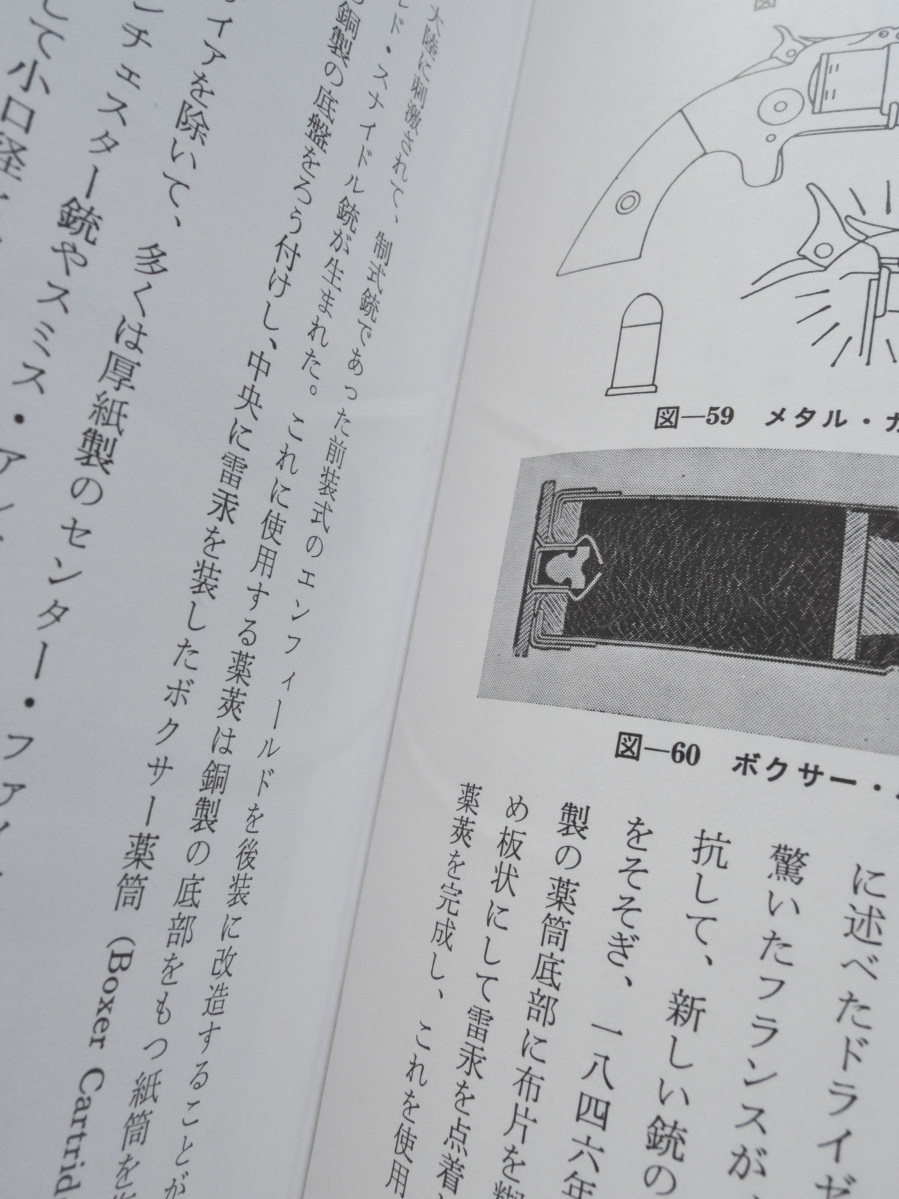 図—59 メタル・カ
図—60 ボクサー・
に述べたドライゼ
驚いたフランスが
抗して、新しい銃の
をそそぎ、一八四六年
製の薬筒底部に布片を
め板状にして雷汞を点着
薬莢を完成し、これを使用
大陸に刺激されて、制式銃であった前装式のエンフィールドを後装に改造することが
ド・スナイドル銃が生まれた。これに使用する薬莢は銅製の底部をもつ紙筒を
銅製の底盤をろう付けし、中央に雷汞を装したボクサー薬筒(Boxer Cartrid
イアを除いて、多くは厚紙製のセンター・ファ
ンチェスター銃やスミス・アン
して小口径